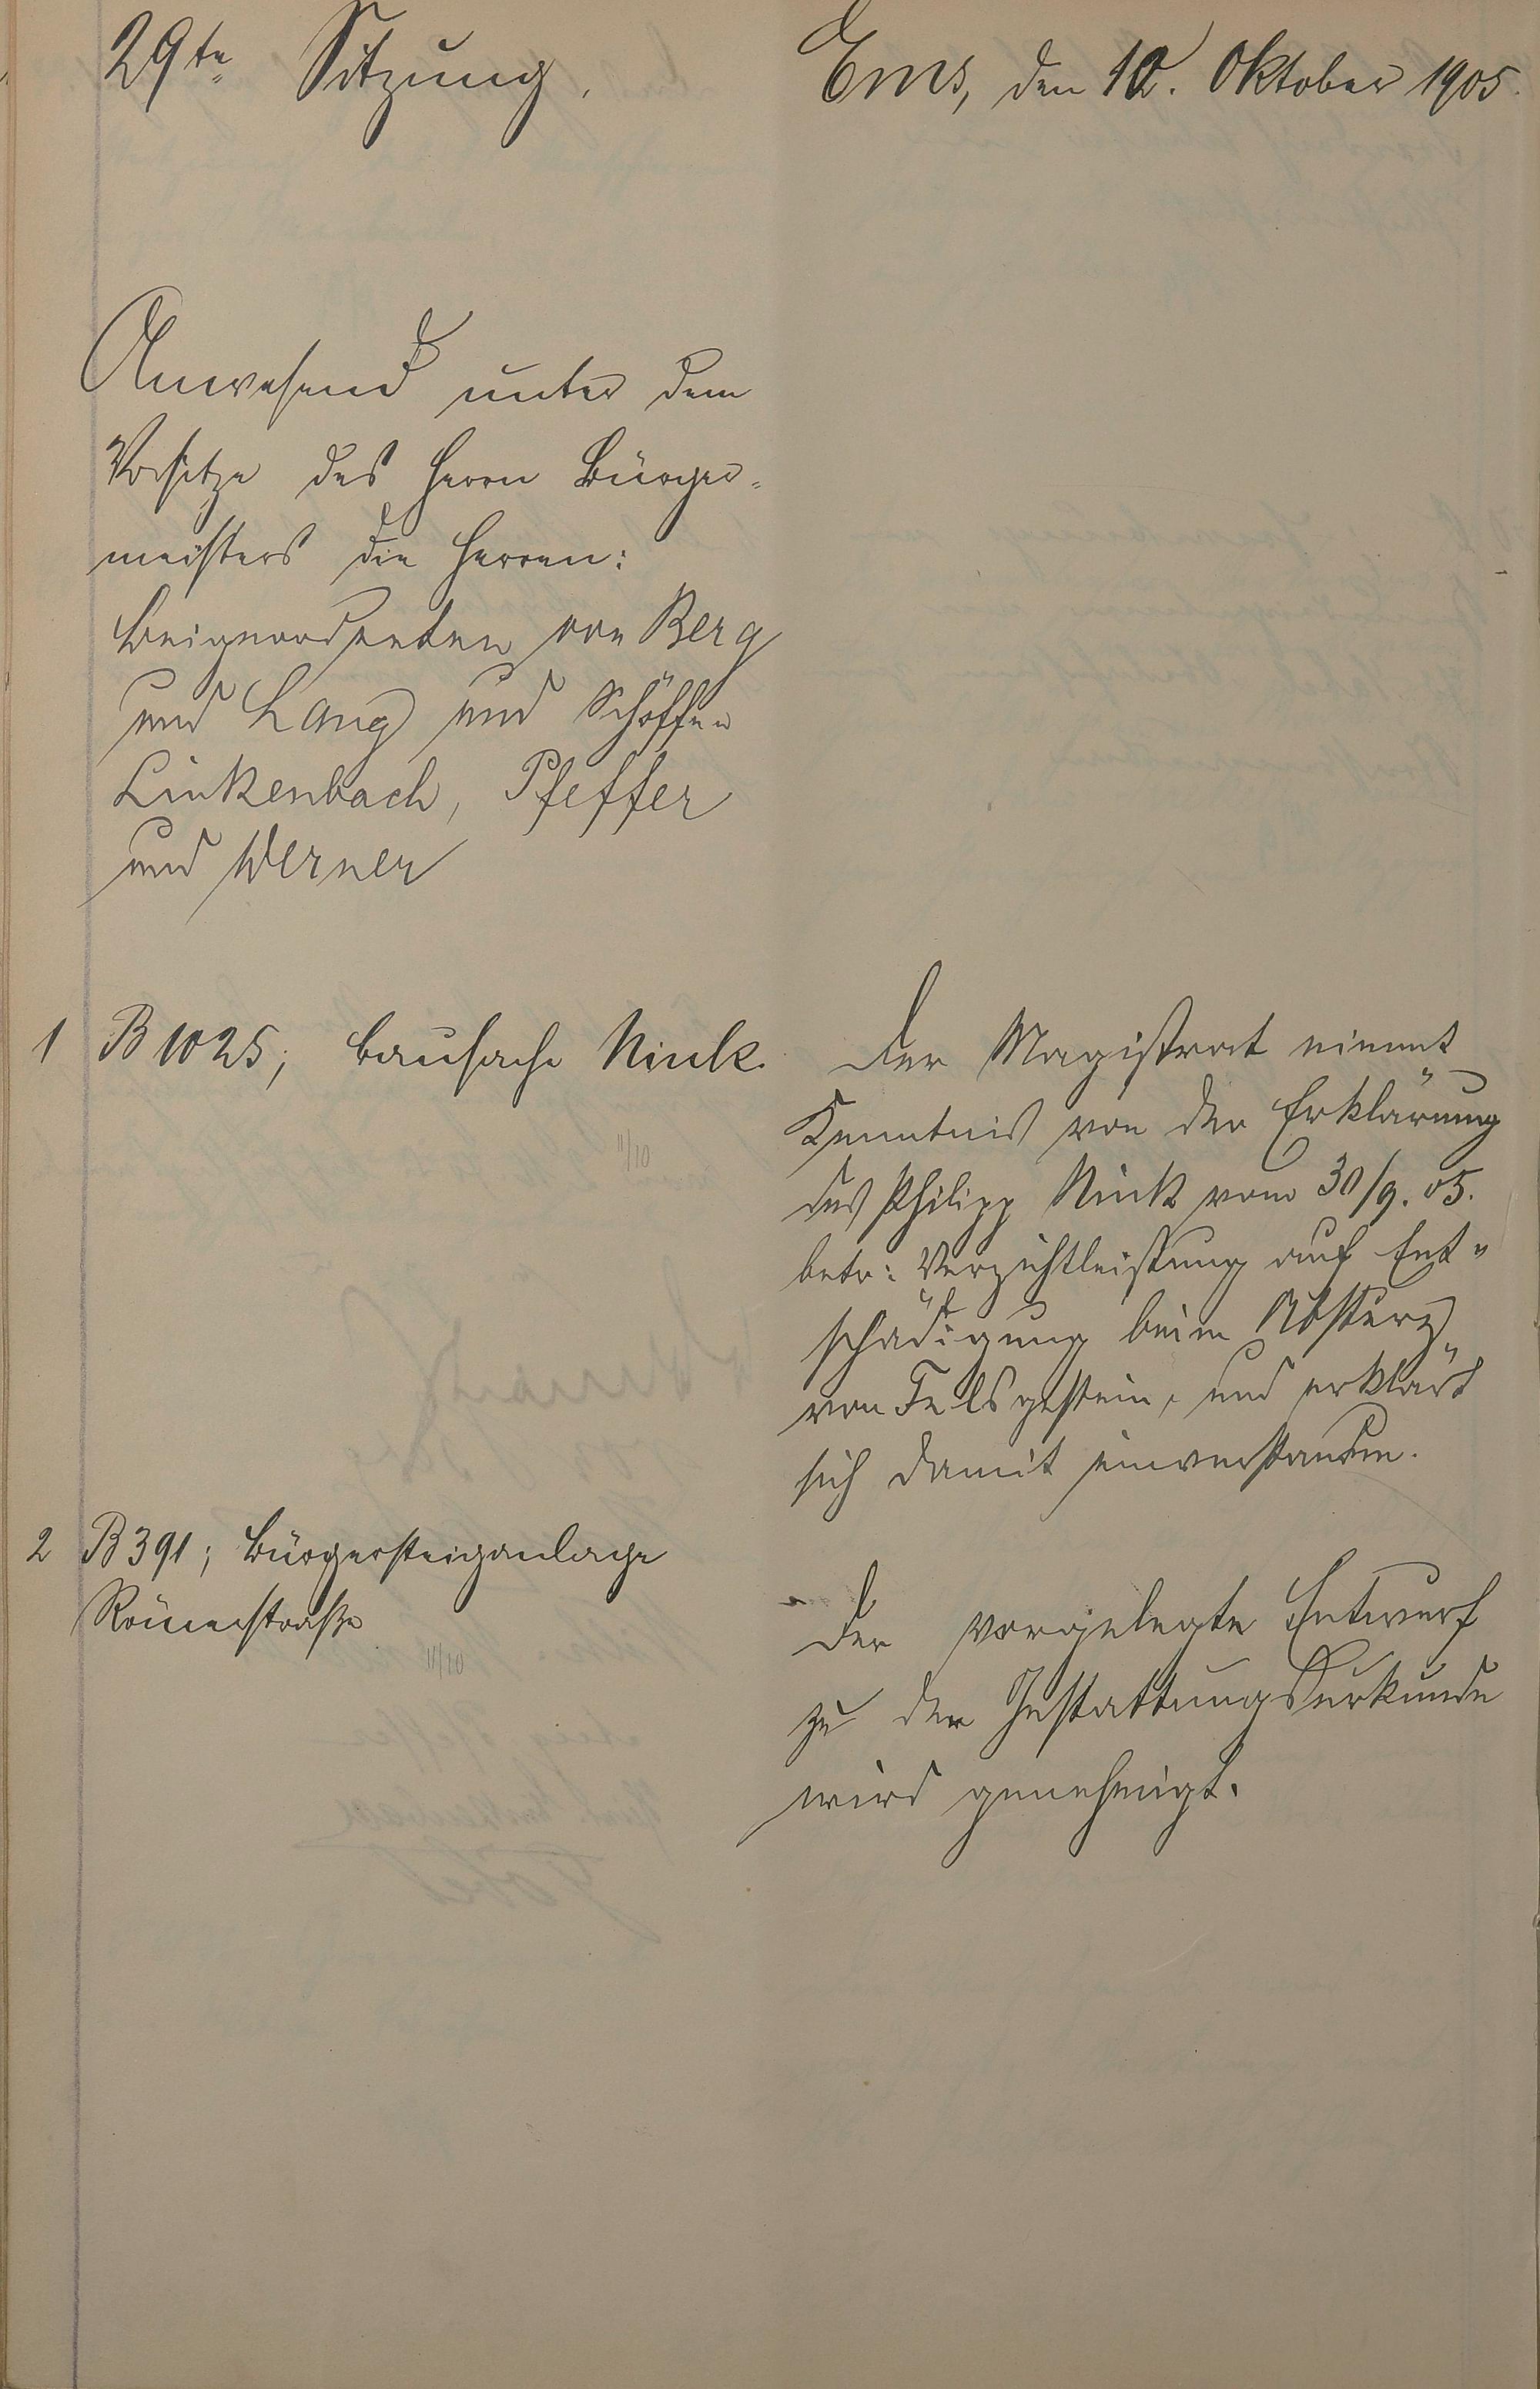 29te Sitzung.
Ems, den 10. Oktober 1905.
Anwesend unter dem
Vorsitze des Herrn Bürger-
meisters die Herren:
Beigeordneten von Berg
und Lang und Schöffen
Linkenbach, Pfeffer
und Werner
1 B 1025; Bausache Nink.
11/10
Der Magistrat nimmt
Kenntnis von der Erklärung
des Philipp Nink vom 30/9. 05.
betr: Verzichtleistung auf Ent-
schädigung beim Absturz
von Felsgestein, und erklärt
sich damit einverstanden.
2 B 391; Bürgersteiganlage
Römerstraße
11/10
Der vorgelegte Entwurf
zu der Gestattungsurkunde
wird genehmigt.